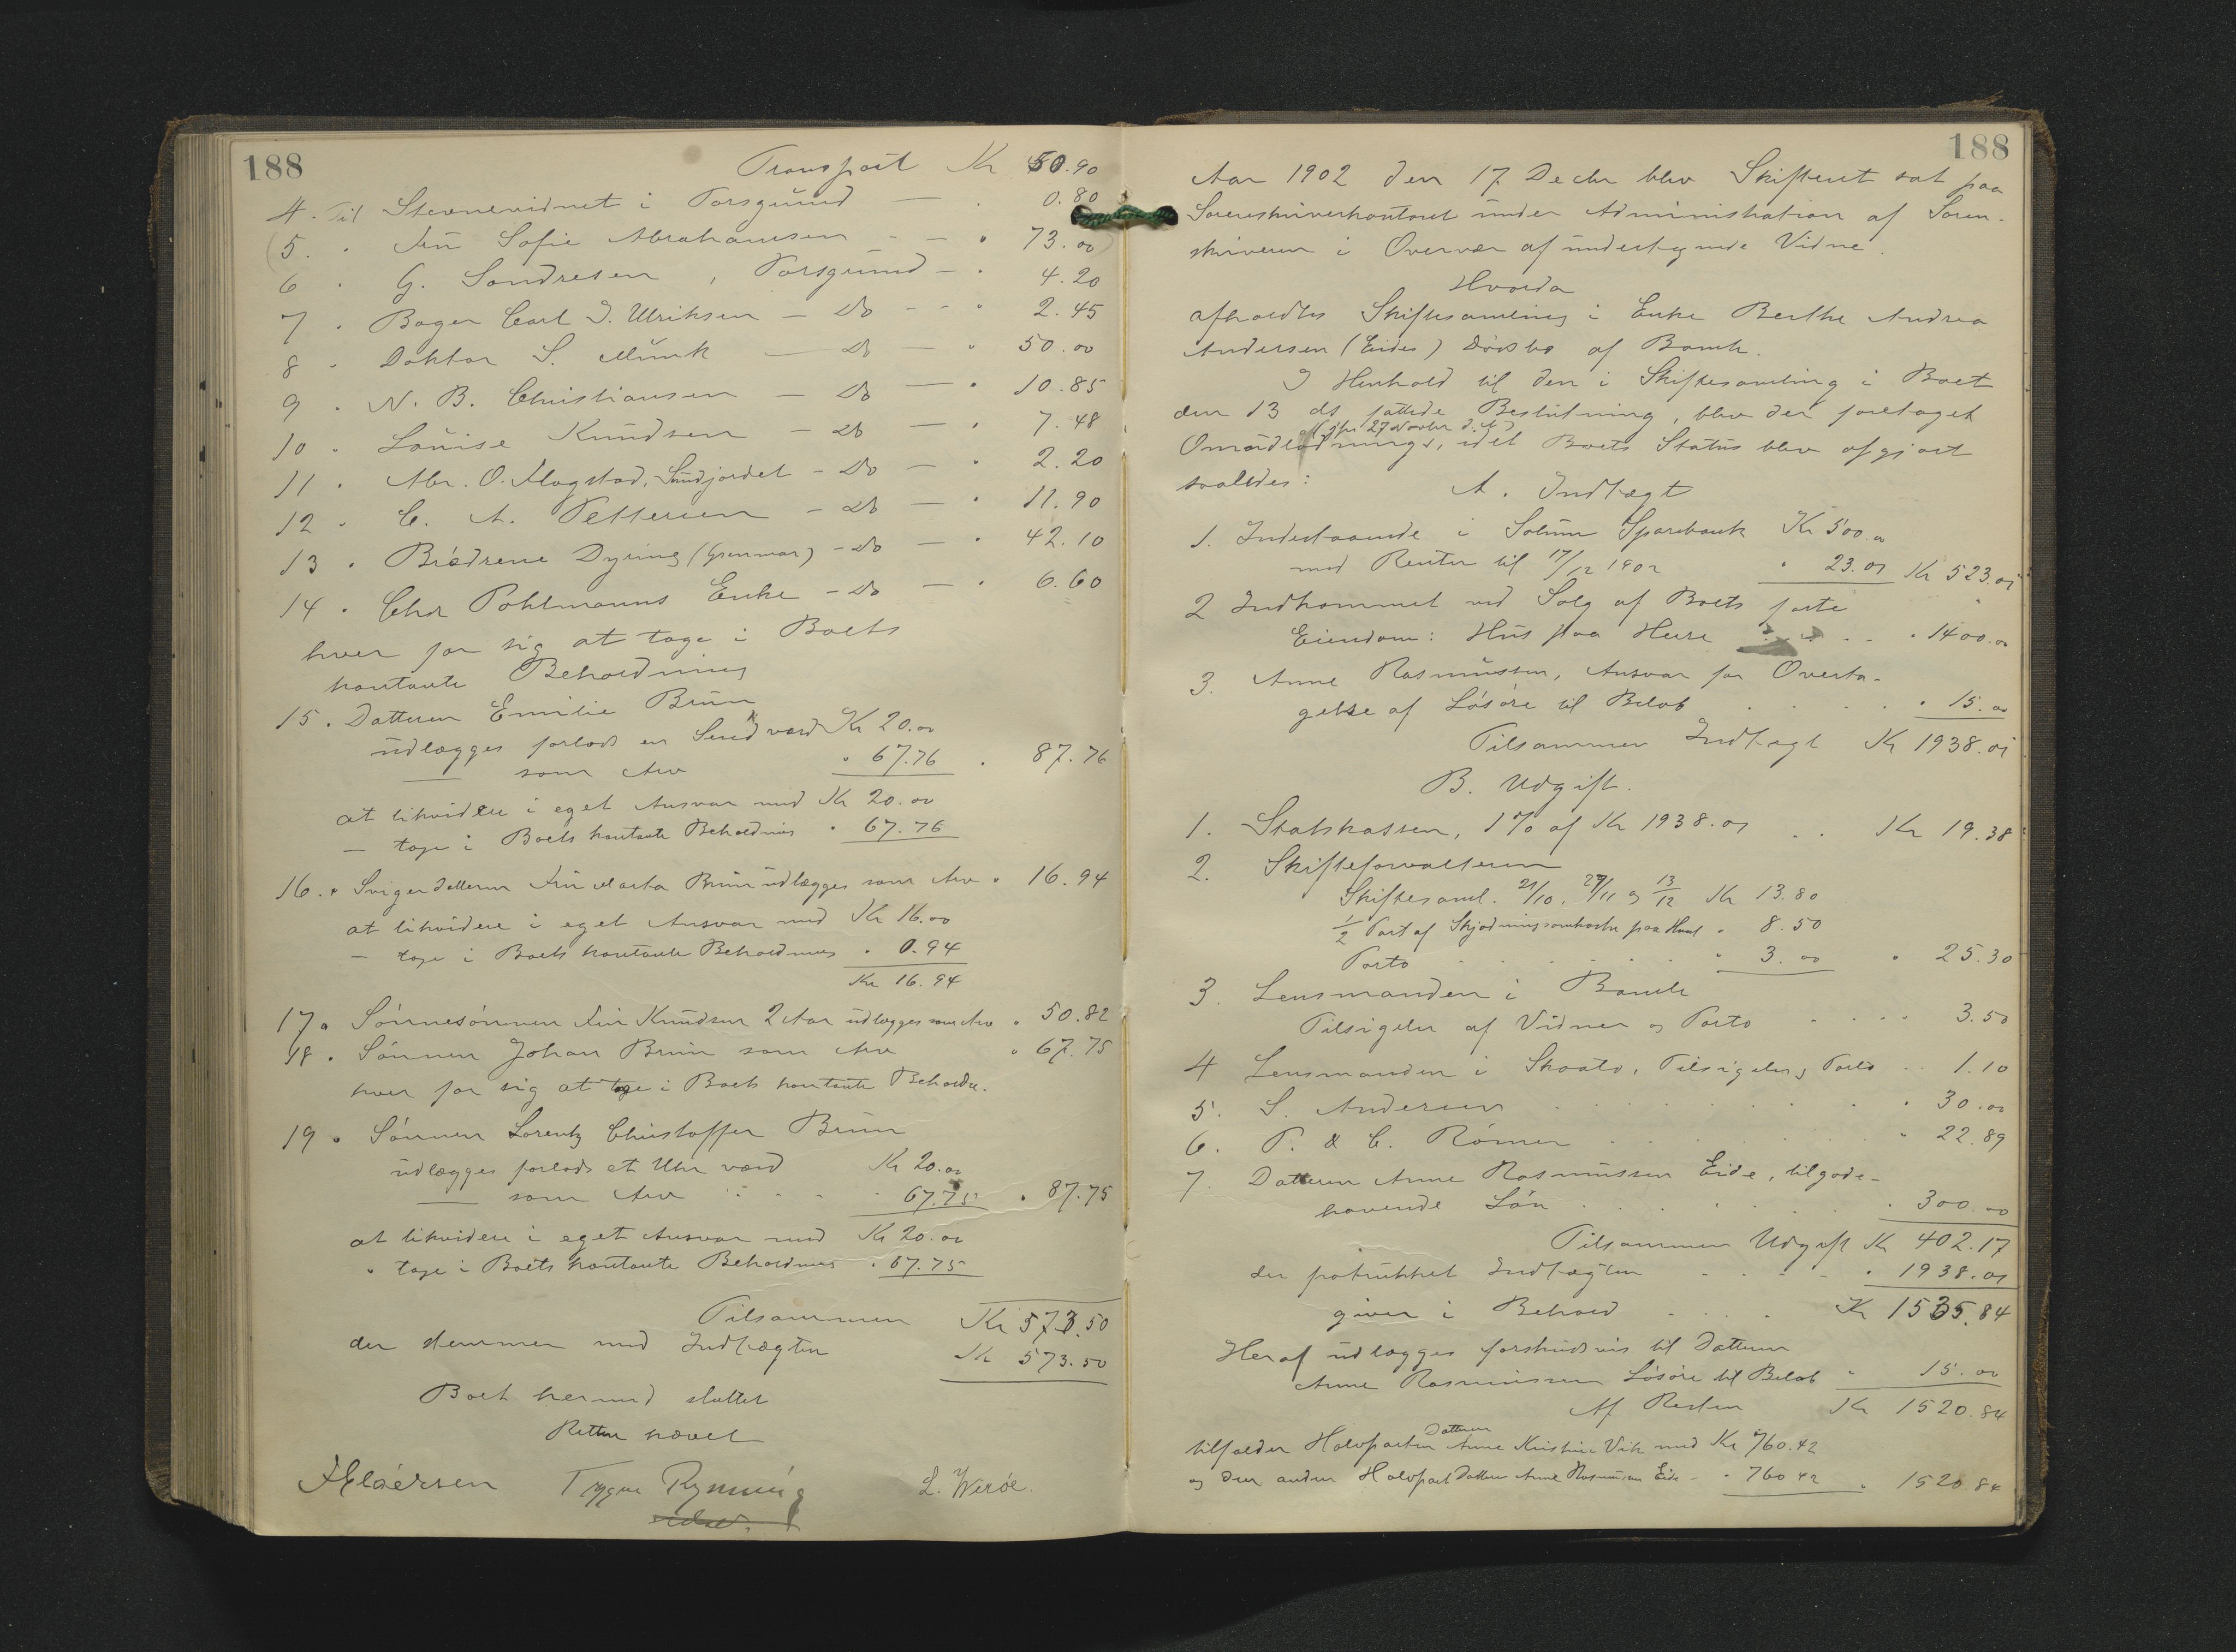 188
Transport Kr 50.90
4. Til Stevnevidnet i Porsgrund — 0.80
(5. " Fru Sofie Abrahamsen - - " 73.00)
6 " G. Sondresen, Porsgrund - " 4.20
7 " Bager Carl J. Ulriksen - Do - - " 2.45
8 " Doktor S. Munk — Do — " 50.00
9 " N. B. Christiansen — Do — " 10.85
10 " Louise Knudsen — Do — " 7.48
11 " Abr. O. Flogstad, Sundjordet - Do — " 2.20
12 " C. A. Pettersen - Do — " 11.90
13 " Brødrene Dyring (Grenmar) - Do — " 42.10
14 " Chr Pohlmanns Enke - Do — " 6.60
hver for sig at tage i Boets
kontante Beholdning
15. Datteren Emilie Bruun
udlægges forlods en Seng værd Kr 20.00
— som Arv " 67.76 " 87.76
at likvidere i eget Ansvar med Kr 20.00
— tage i Boets kontante Beholdning " 67.76
16. " Svigerdatteren Fru Marta Bruun udlægges som Arv " 16.94
at likvidere i eget Ansvar med Kr 16.00
— tage i Boets kontante Beholdning " 0.94
Kr 16.94
17 " Sønnesønnen Finn Knudsen 2 Aar udlægges som Arv " 50.82
18 " Sønnen Johan Bruun som Arv " 67.75
hver for sig at tage i Boets kontante Beholdn.
19 " Sønnen Lorentz Christoffer Bruun
udlægges forlods et Uhr værd Kr 20.00
— som Arv " 67.75 " 87.75
at likvidere i eget Ansvar med Kr 20.00
" tage i Boets kontante Beholdning " 67.75
Tilsammen Kr 573.50
der stemmer med Indtægten Kr 573.50
Boet hermed sluttet
Retten hævet
Trygve Rynning L. Werøe.
188
Aar 1902 den 17 Decbr blev Skifteret sat paa
Sorenskriverkontoret under Administration af Soren-
skriveren i Overvær af undertegnede Vidne.
Hvorda
afholdtes Skiftesamling i Enke Berthe Andrea
Andersen (Eides) Dødsbo af Bamle.
I Henhold til den i Skiftesamling i Boet
den 13 ds fattede Beslutning, blev der foretaget
(jfr 27 Novbr d. A.)
Omudlodnings, idet Boets Status blev afgjort
saaledes:
A. Indtægt
1. Indestaaende i Solum Sparebank Kr 500.00
med Renter til 17/12 1902 " 23.01 Kr 523.01
2 Indkommet ved Salg af Boets faste
Eiendom: Hus paa Herre " 1400.00
3. Anne Rasmussen, Ansvar for Overta-
gelse af Løsøre til Beløb " 15.00
Tilsammen Indtægt Kr 1938.01
B. Udgift.
1. Statskassen, 1% af Kr 1938.01 . . Kr 19.38
2. Skifteforvalteren
Skiftesaml. 21/10, 27/11 og 13/12 Kr 13.80
1/2 Part af Skjødningsomkostn paa Huset " 8.50
Porto " 3.00 " 25.30
3. Lensmanden i Bamle
Tilsigelse af Vidner og Porto . . . . 3.50
4 Lensmanden i Skaatø, Tilsigelse, Porto . . 1.10
5. S. Andersen " 30.00
6. P. & C. Rømer " 22.89
7. Datteren Anne Rasmussen Eide, tilgode-
havende Løn " 300.00
Tilsammen Udgift Kr 402.17
der fratrukket Indtægten " 1938.01
giver i Behold Kr 1535.84
Heraf udlægges forskudsvis til Datteren
Anne Rasmussen Løsøre til Beløb " 15.00
Af Resten Kr 1520.84
Datteren
tilfalder Halvparten Anne Kristine Vik med Kr 760.42
og den anden Halvpart Datteren Anne Rasmussen Eide - " 760.42 " 1520.84